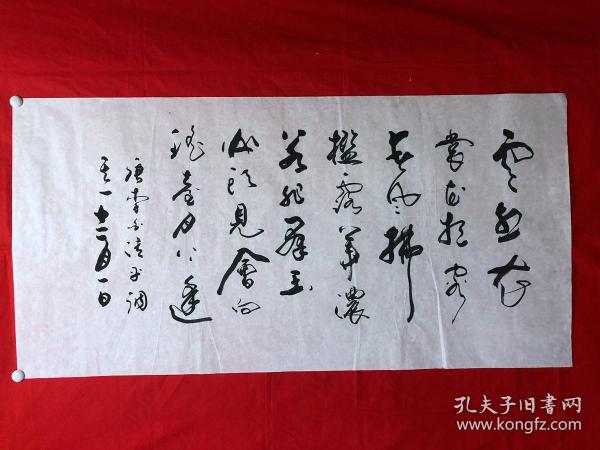 雲想衣
裳花想容
春风拂
檻露華濃
若非群玉
山頭見會向
瑤臺月下逢
唐李白清平调
其一十二月一日
孔夫子旧書网
www.kongfz.com